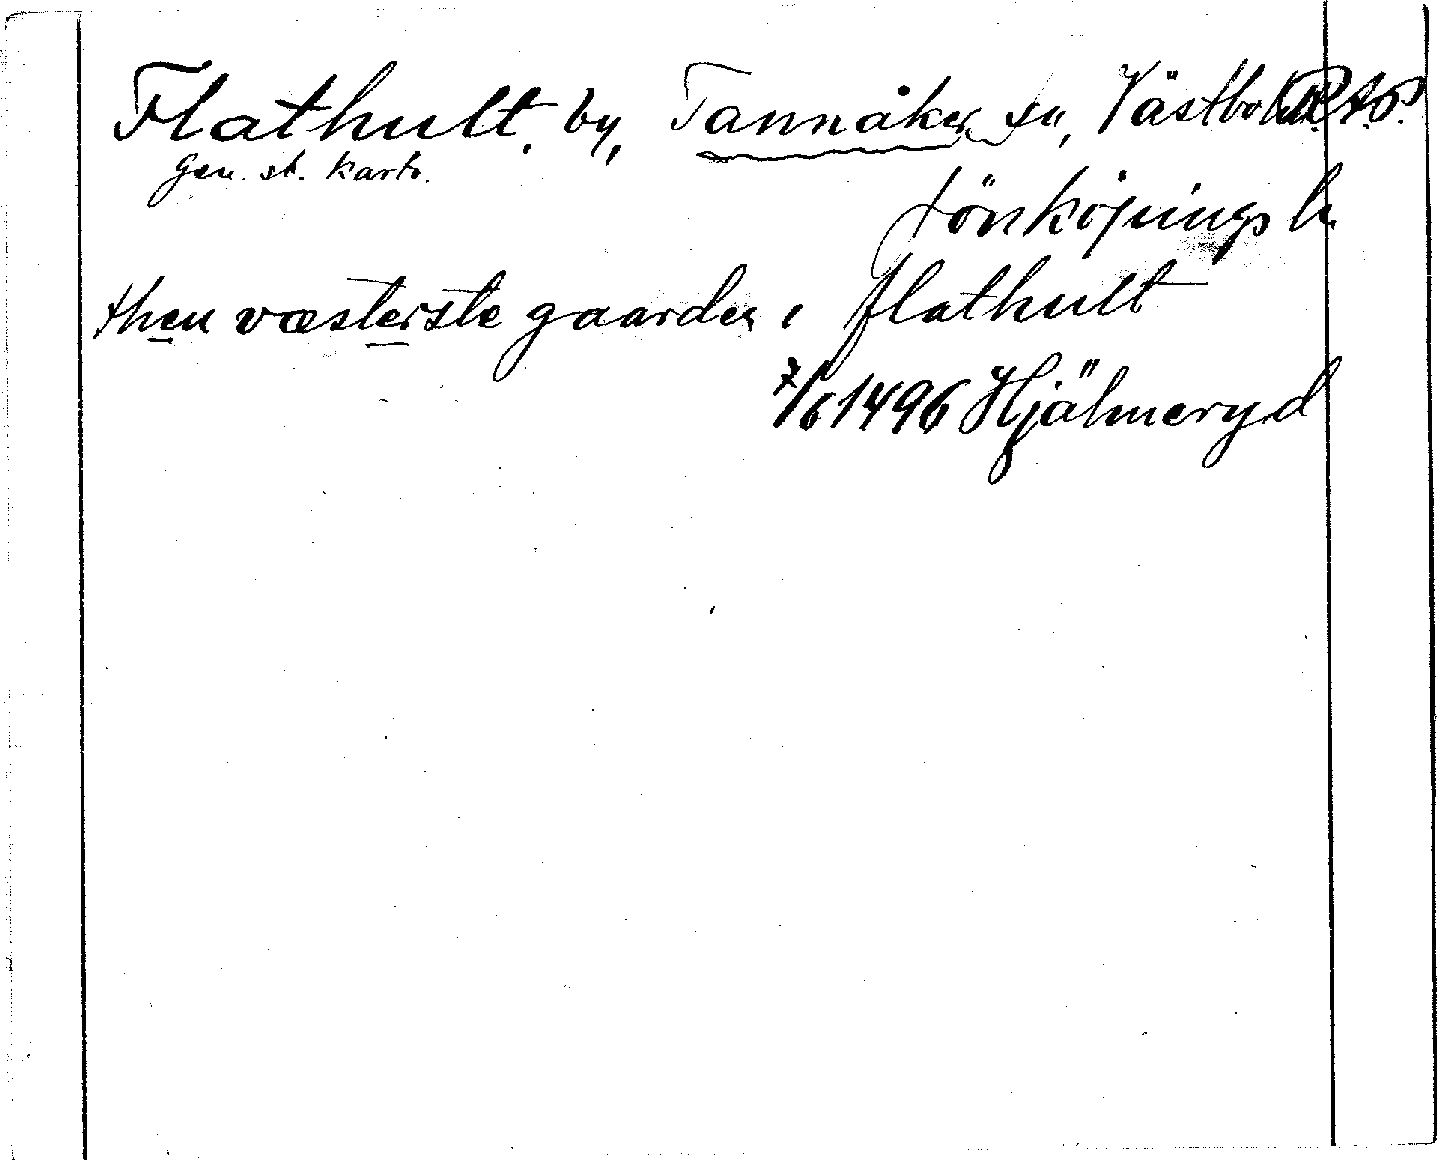 Flathult, by, Tannåker sn, Västbo
gen. st. karta.
Jönköpings l.
then væsterste gaarden i flathult
7/6 1496 Hjälmeryd